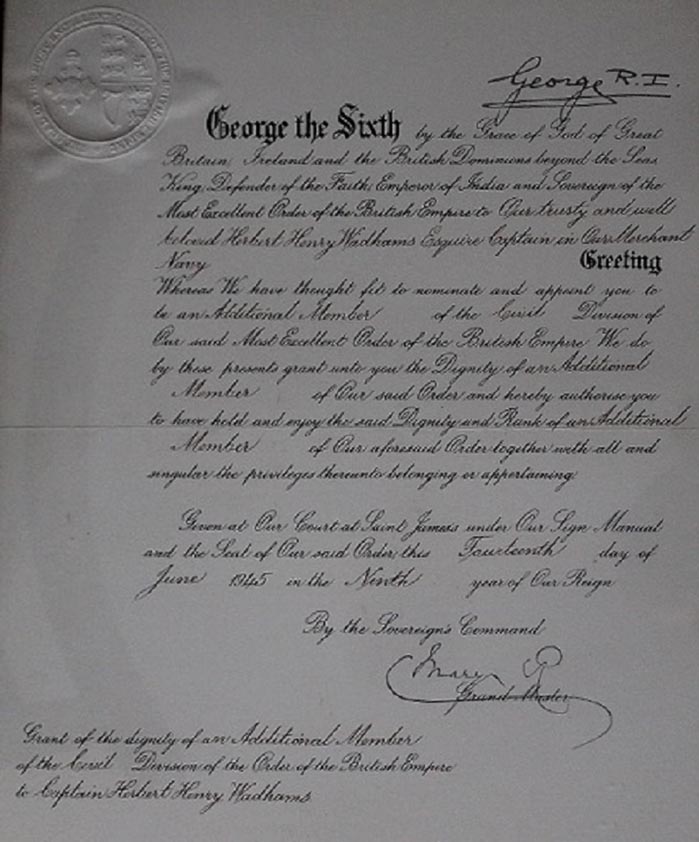 George R.I.
George the Sixth by the Grace of God of Great
Britain, Ireland and the British Dominions beyond the Seas
King, Defender of the Faith, Emperor of India and Sovereign of the
Most Excellent Order of the British Empire to Our trusty and well
beloved Herbert Henry Wadhams Esquire Captain in Our Merchant
Navy Greeting
Whereas We have thought fit to nominate and appoint you to
be an Additional Member of the Civil Division of
Our said Most Excellent Order of the British Empire We do
by these presents grant unto you the Dignity of an Additional
Member of Our said Order and hereby authorise you
to have hold and enjoy the said Dignity and Rank of an Additional
Member of Our aforesaid Order together with all and
singular the privileges thereunto belonging or appertaining.
Given at Our Court at Saint James's under Our Sign Manual
and the Seal of Our said Order this Fourteenth day of
June 1945 in the Ninth year of Our Reign
By the Sovereign's Command
Mary R
Grand Master
Grant of the dignity of an Additional Member
of the Civil Division of the Order of the British Empire
to Captain Herbert Henry Wadhams.